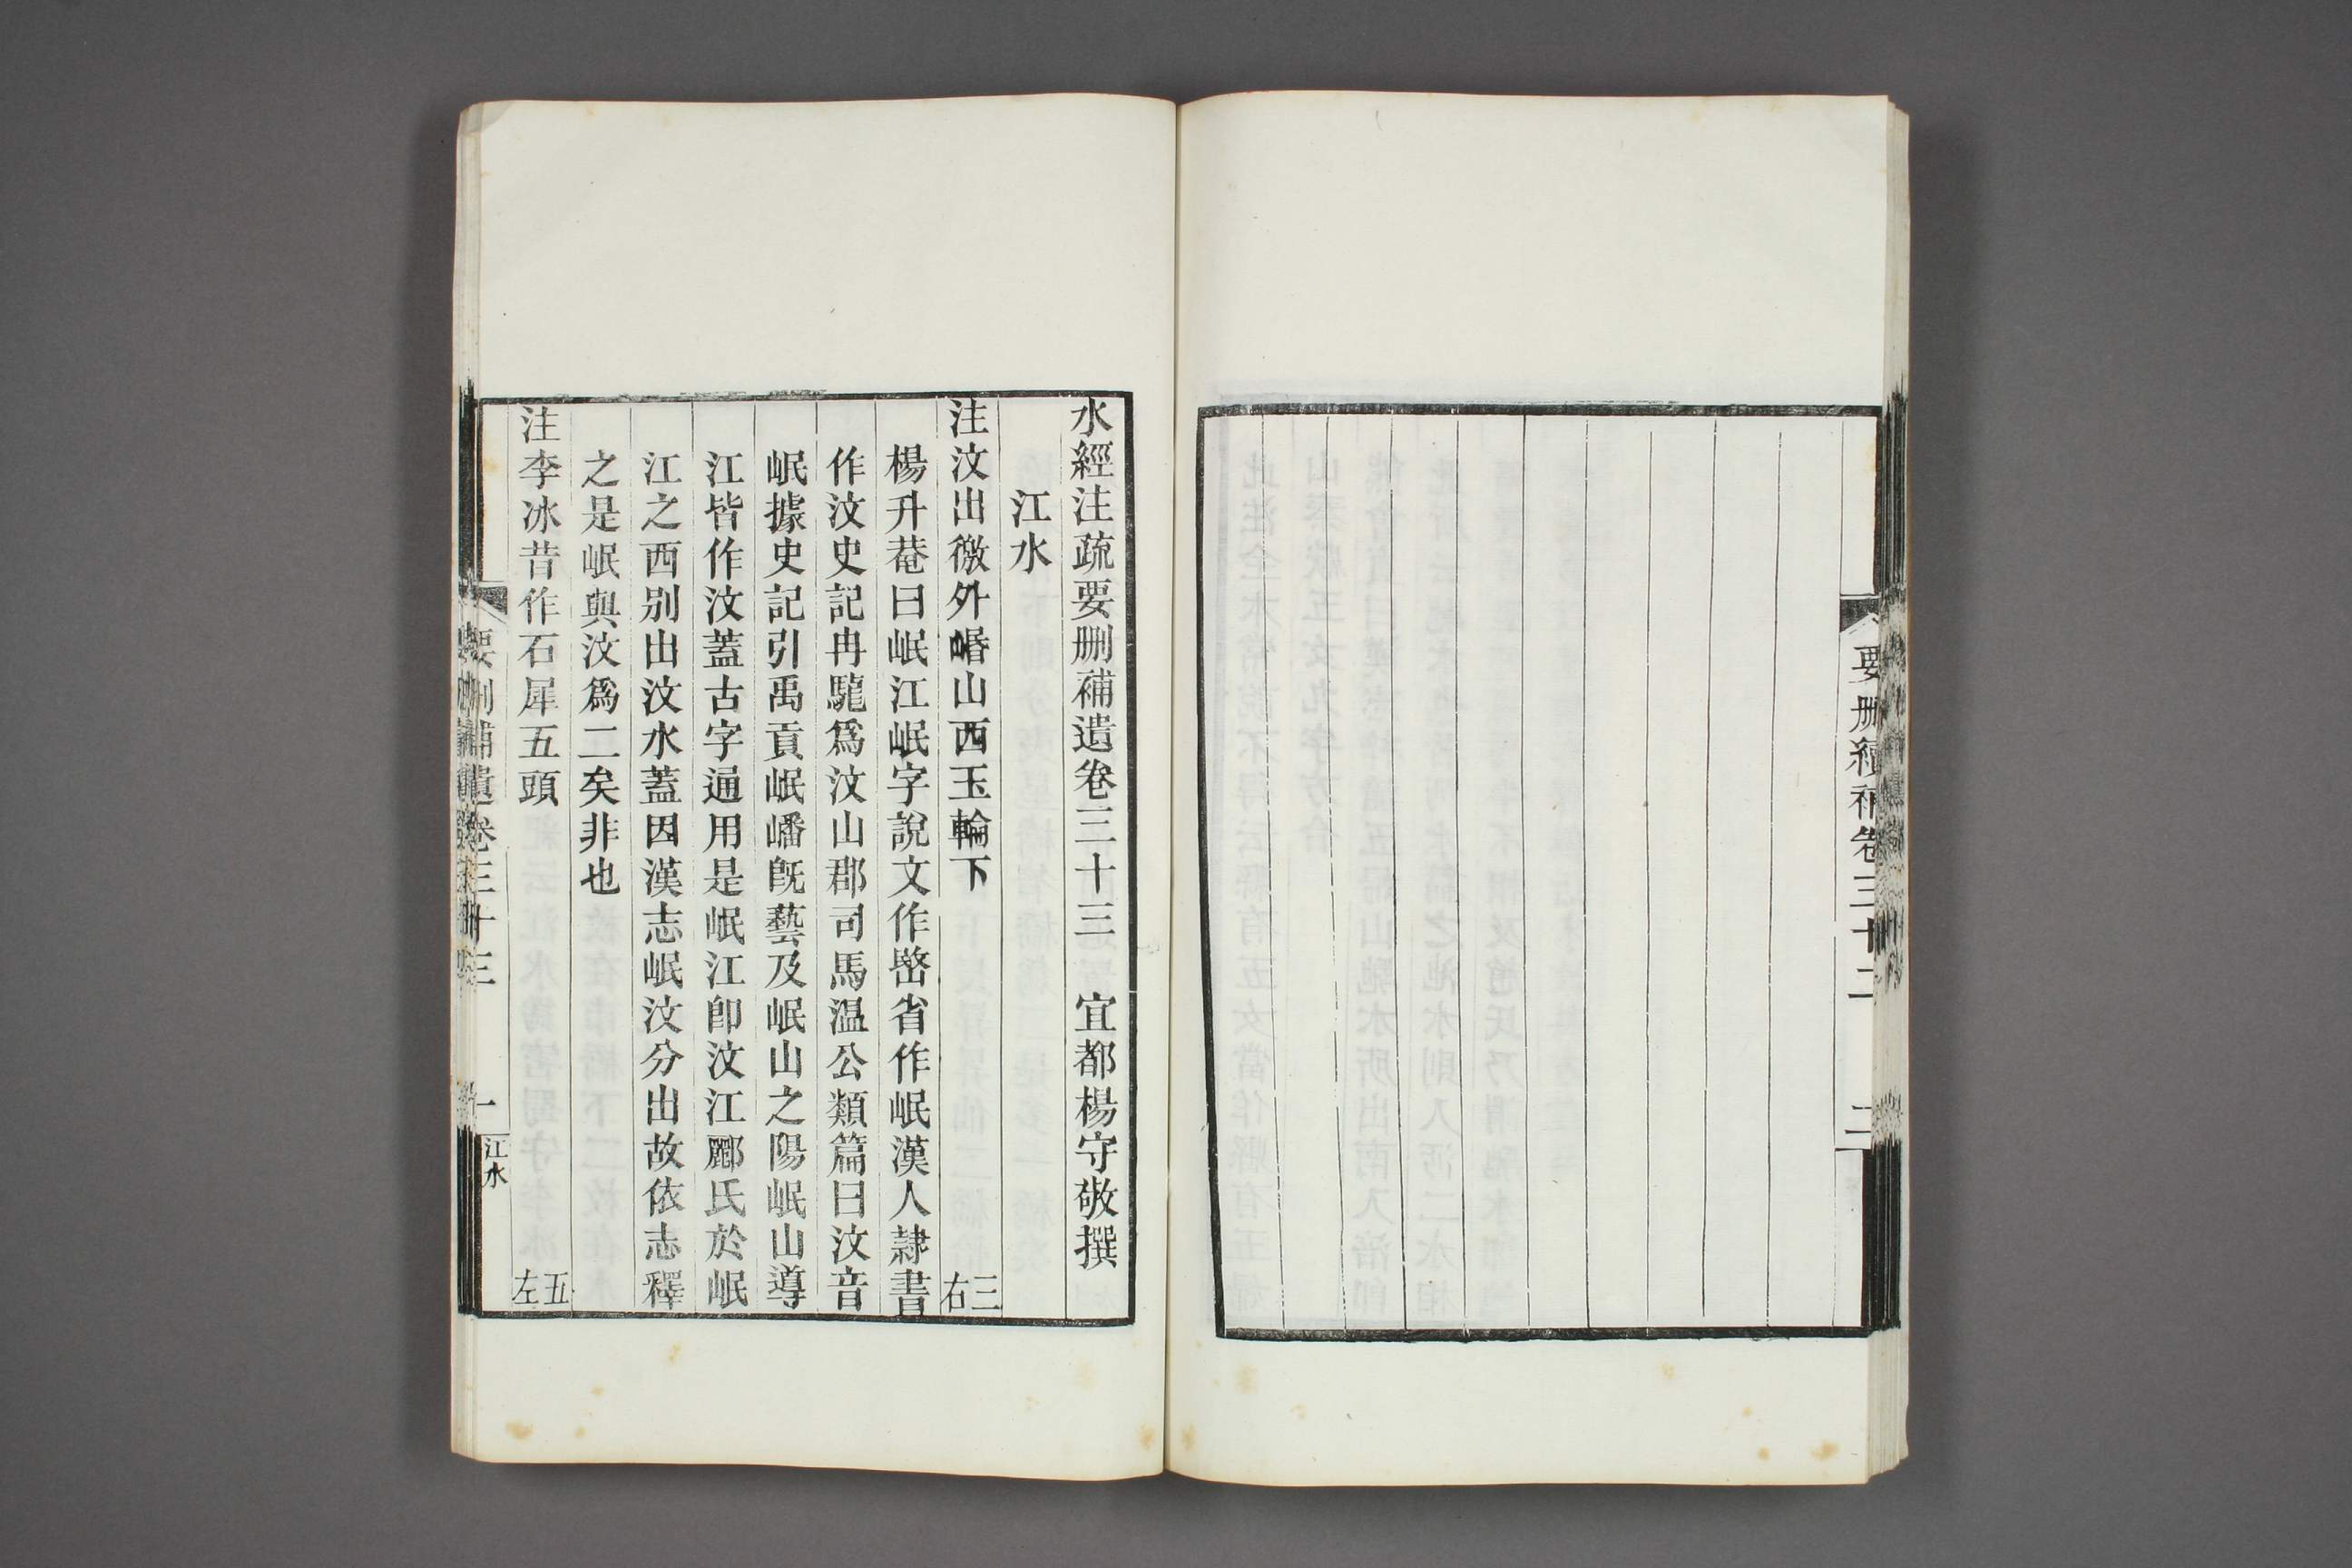 要刪續補卷三十二
二
水經注疏要刪補遺卷三十三　宜都楊守敬撰
江水
注汶出徼外㟭山西玉輪下　三右
楊升菴曰岷江岷字說文作𡻕省作岷漢人隸書
作汶史記冉駹爲汶山郡司馬温公類篇曰汶音
岷據史記引禹貢岷嶓旣藝及岷山之陽岷山導
江皆作汶蓋古字通用是岷江卽汶江酈氏於岷
江之西別出汶水蓋因漢志岷汶分出故依志釋
之是岷與汶爲二矣非也
注李冰昔作石犀五頭　五左
要刪補遺卷三十三
一
江水